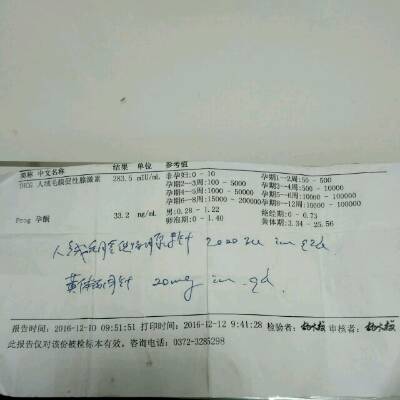 英称 中文名称 结果 单位 参考值
THCG 人绒毛膜促性腺激素 283.5 mIU/mL 非孕妇:0 - 10 孕期1--2周:50 - 500
孕期2--3周:100 - 5000 孕期3--4周:500 - 10000
孕期4--5周:1000 - 50000
孕期6--8周:15000 - 200000
Prog 孕酮 33.2 ng/mL 男:0.28 - 1.22 绝经期:0 - 0.73
卵泡期:0 - 1.40 黄体期:3.34 - 25.56
人绒毛膜促性腺激素针 2000 iu im qod
黄体酮针 20mg im qd
报告时间:2016-12-10 09:51:51 打印时间:2016-12-12 9:41:28 检验者: 审核者:
此报告仅对该份被检标本有效。咨询电话:0372-3285298